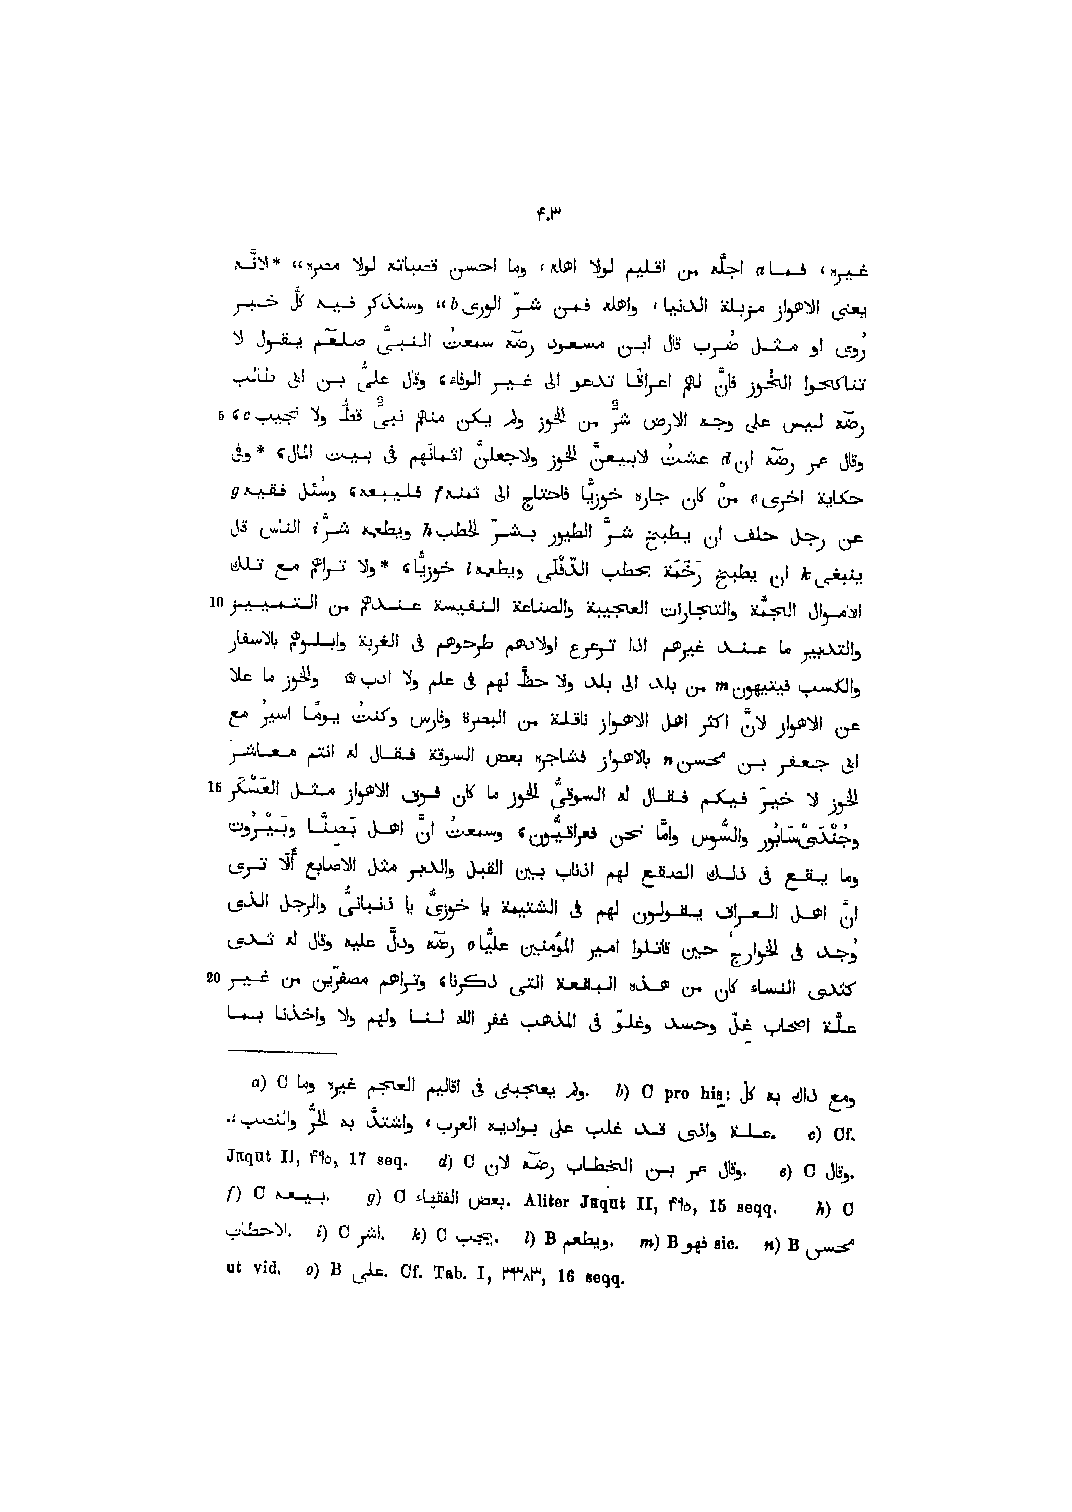 ٤٠٣
غيره، فما a اجلّه من اقليم لولا اهله، وما احسن قصباته لولا مصره،، *لانّه
يعنى الاهواز مزبلة الدنيا، واهله فمن شرّ الورى b،، وسنذكر فيه كلّ خبر
رُوى او مثل ضُرب قال ابن مسعود رضّه سمعتُ النبىَّ صلعم يقول لا
تناكحوا الخُوز فانَّ لهم اعراقًا تدعو الى غير الوفاء، وقال علىُّ بن ابى طالب
رضّه ليس على وجه الارض شرٌّ من الخوز ولم يكن منهم نبىٌّ قطُّ ولا نجيب c، 5
وقال عمر رضّه ان d عشتُ لابيعنَّ الخوز ولاجعلنَّ اثمانَهم فى بيت المال، *وفى
حكاية اخرى e مَنْ كان جاره خوزيًّا فاحتاج الى ثمنه f فليبعه، وسُئل فقيه g
عن رجل حلف ان يطبخ شرَّ الطيور بشرّ الحطب h ويطعمه شرَّ i الناس قال
ينبغى k ان يطبخ رَخَمَة بحطب الدِّفْلَى ويطعمه l خوزيًّا، *ولا تراهم مع تلك
الاموال الجمَّة والتجارات العجيبة والصناعة النفيسة عندهم من التمييز 10
والتدبير ما عند غيرهم اذا ترعرع اولادهم طرحوهم فى الغربة وابلوهم بالاسفار
والكسب فيتيهون m من بلد الى بلد ولا حظَّ لهم فى علم ولا ادب ۞ والخوز ما علا
عن الاهواز لانَّ اكثر اهل الاهواز ناقلة من البصرة وفارس وكنتُ يومًا اسيرُ مع
ابى جعفر بن محسن n بالاهواز فشاجره بعض السوقة فقال له انتم معاشرَ
الخوز لا خيرَ فيكم فقال له السوقىُّ الخوز ما كان فوق الاهواز مثل العَسْكَر 15
وجُنْدَىْسَابُور والسُّوس وامَّا نحن فعراقيُّون، وسمعتُ انَّ اهل بَصِنَّا وبَيْرُوت
وما يقع فى ذلك الصقع لهم اذناب بين القبل والدبر مثل الاصابع ألَا ترى
انَّ اهل العراق يقولون لهم فى الشتيمة يا خوزىُّ يا ذنبانىُّ والرجل الذى
وُجد فى الخوارج حين قاتلوا امير المؤمنين عليًّا o رضّه ودلَّ عليه وقال له ثدى
كثدى النساء كان من هذه الباقعة التى ذكرنا، وتراهم مصفرّين من غير 20
علّة اصحاب غلّ وحسد وغلوّ فى المذهب غفر الله لنا ولهم ولا واخذنا بما
a) C ولم يعجبنى فى اقاليم العجم غيره وما. b) C pro his: ومع ذلك به كلّ
علّة واذى قد غلب على بواديه العرب، واشتدَّ به الحرُّ والنصب،. c) Cf.
Jaqut II, ۴۹۵, 17 seq. d) C وقال عمر بن الخطاب رضّه لان. e) C وقال.
f) C بيعه. g) C بعض الفقهاء. Aliter Jaqut II, ۴۹۵, 15 seqq. h) C
الاحطاب. i) C اشر. k) C يجب. l) B ويطعم. m) B فهو sic. n) B محسى
ut vid. o) B على. Cf. Tab. I, ٣٣٨٣, 16 seqq.